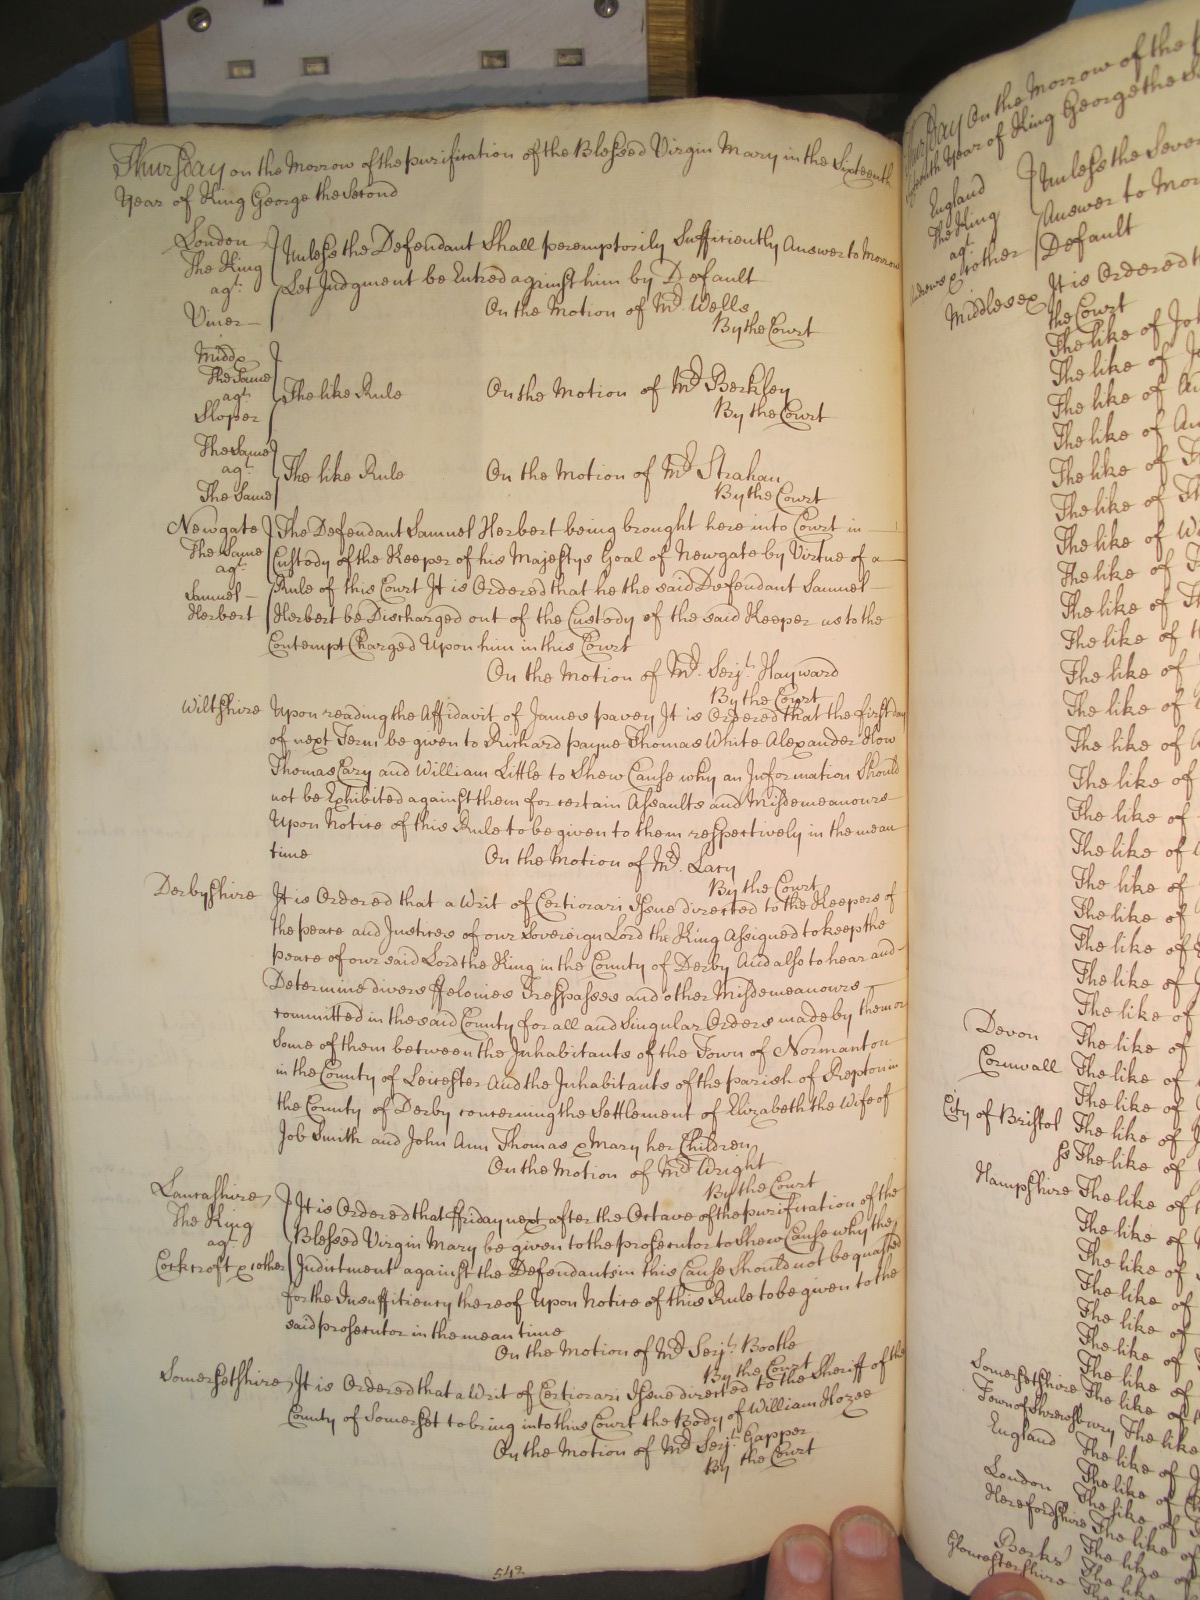 Thursday on the Morrow of the purification of the Blessed Virgin Mary in the Sixteenth
Year of King George the Second
London
The King
agt.
Viner
Unless the Defendant Shall peremptorily Sufficiently Answer to Morrow
Let Judgment be Entred against him by Default
On the Motion of Mr. Wells
By the Court
Middx
The Same
agt.
Sloper
The like Rule On the Motion of Mr. Berkley
By the Court
The Same
agt.
The Same
The like Rule On the Motion of Mr. Strahan
By the Court
Newgate
The Same
agt.
Samuel
Herbert
The Defendant Samuel Herbert being brought here into Court in
Custody of the Keeper of his Majestys Goal of Newgate by Virtue of a
Rule of this Court It is Ordered that he the said Defendant Samuel
Herbert be Discharged out of the Custody of the said Keeper as to the
Contempt Charged Upon him in this Court
On the Motion of Mr. Serjt. Hayward
By the Court
Wiltshire Upon reading the Affidavit of James pavey It is Ordered that the first day
of next Term be given to Richard payne Thomas White Alexander How
Thomas Cary and William Little to Shew Cause why an Information Should
not be Exhibited against them for certain Assaults and Misdemeanours
Upon Notice of this Rule to be given to them respectively in the mean
time On the Motion of Mr. Lacy
By the Court
Derbyshire It is Ordered that a Writ of Certiorari Issue directed to the Keepers of
the peace and Justices of our Sovereign Lord the King Assigned to keep the
peace of our said Lord the King in the County of Derby And also to hear and
Determine divers ffelonies Trespasses and other Misdemeanours
committed in the said County for all and Singular Orders made by them or
Some of them between the Inhabitants of the Town of Normanton
in the County of Leicester And the Inhabitants of the parish of Repton in
the County of Derby concerning the Settlement of Elizabeth the Wife of
Job Smith and John Ann Thomas & Mary her Children
On the Motion of Mr. Wright
By the Court
Lancashire
The King
agt.
Cockcroft & other
It is Ordered that ffriday next after the Octave of the purification of the
Blessed Virgin Mary be given to the prosecutor to Shew Cause why the
Indictment against the Defendants in this Cause Should not be quashed
for the Insufficiency thereof Upon Notice of this Rule to be given to the
said prosecutor in the mean time
On the Motion of Mr. Serjt. Bootle
By the Court
Somersetshire It is Ordered that a Writ of Certiorari Issue directed to the Sheriff of the
County of Somerset to bring into this Court the Body of William Hozee
On the Motion of Mr. Serjt. Gapper
By the Court
542
Thursday On the Morrow of the
Year of King George the
England
The King
agt.
& other
Unless the Seve
Answer to Mor
Default
Middlesex It is Ordered
the Court
The like of Joh
The like of
The like of
The like of
The like of
The like of
The like of
The like of
The like of
The like of
The like of
The like of
The like of
The like of
The like of
The like of
The like of
The like of
The like of
The like of
The like of
Devon The like of
Cornwall The like of
The like of
City of Bristol The like of
The like of
Hampshire The like of
The like of
The like of
The like of
The like of
The like of
The like of
Somersetshire The like of
Town of Shrewsbury The like
England The like of
The like of
London The like of
Herefordshire The like of
Berks The like
Gloucestershire The